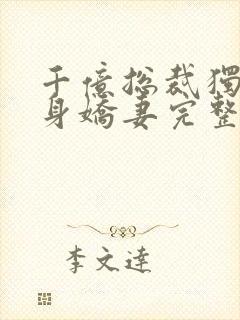 千億總裁獨
身嬌妻完整
李文達